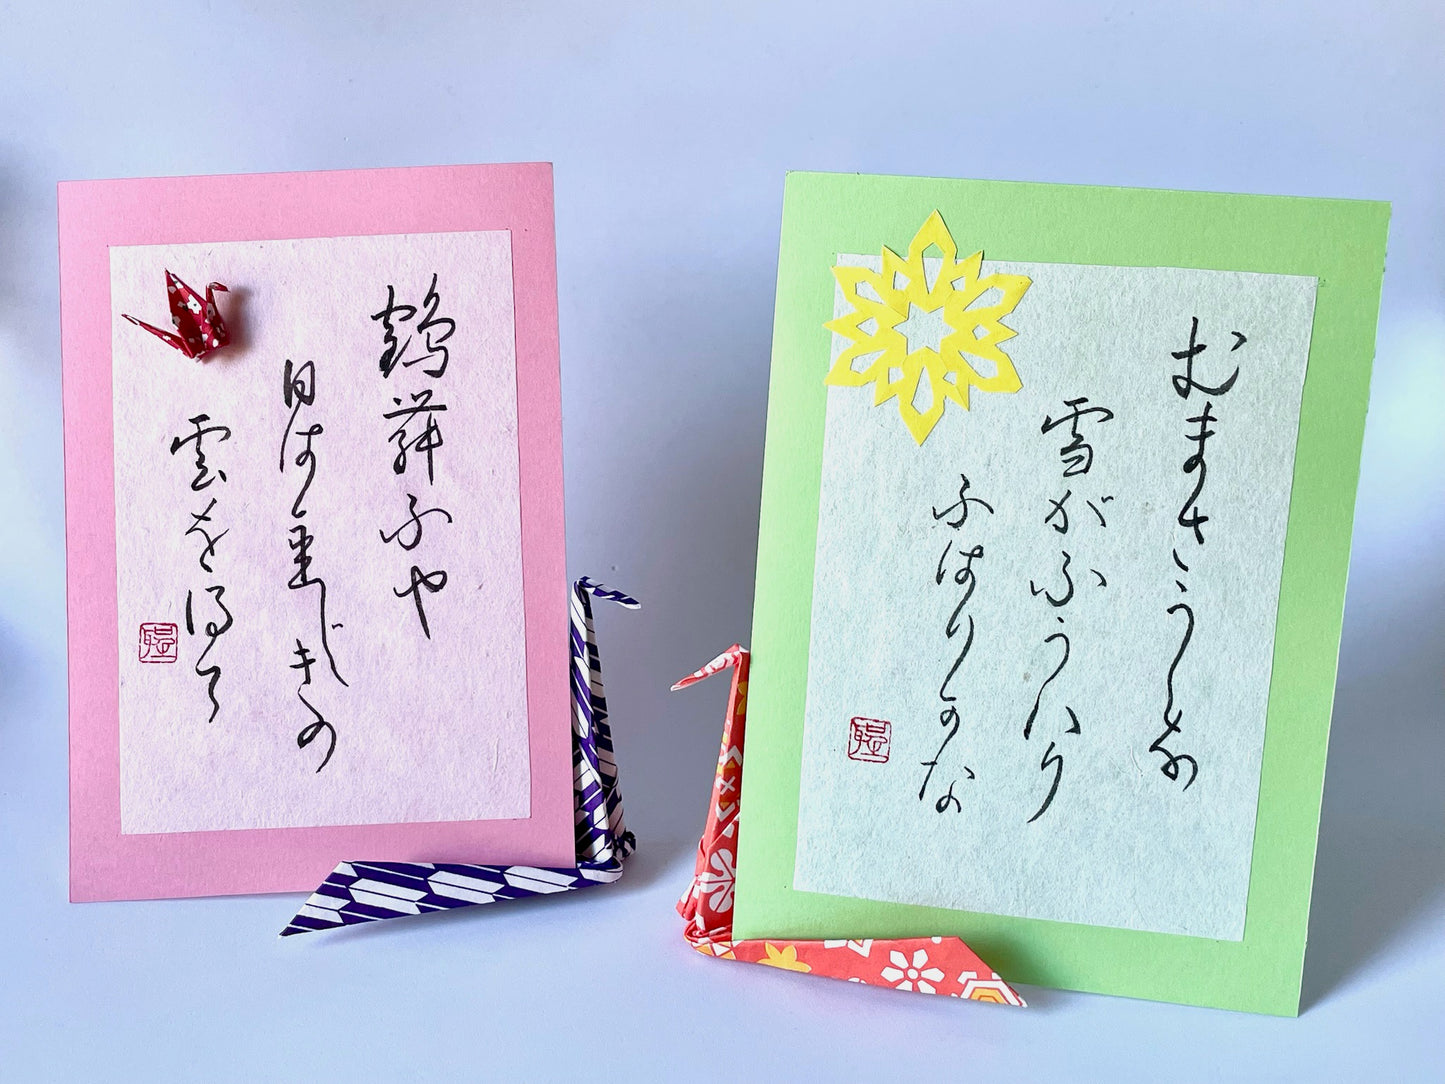 鶴舞ふや
日は金じきの
雲を得て
むまさうな
雪がふうハり
ふはりかな